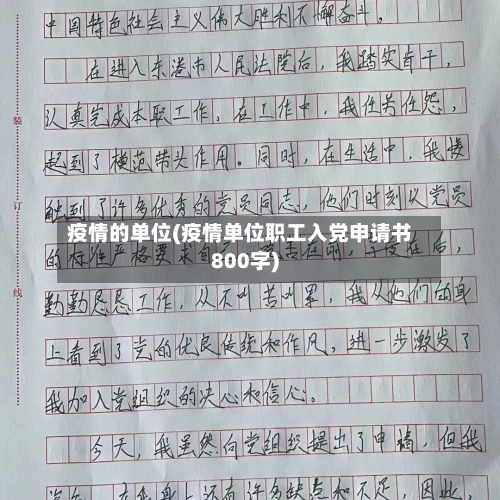 中国特色社会主义伟大胜利不懈奋斗。
在进入东港市人民法院后，我踏实奋干，
认真完成本职工作，在工作中，我任劳任怨，
起到了模范带头作用。同时，在生活中，我接
触到了许多优秀的党员同志，他们时刻以党员
疫情的单位(疫情单位职工入党申请书
的标准严格要求自己，在前，享受在后，
800字)
勤勤恳恳工作，从不叫苦叫累，我从他们的身
上看到了党的优良传统和作风，进一步激发了
我加入党组织的决心和信心。
今天，我虽然向党组织提出了申请，但我
在我身上还有许多缺点和不足，因此，
装
订
线